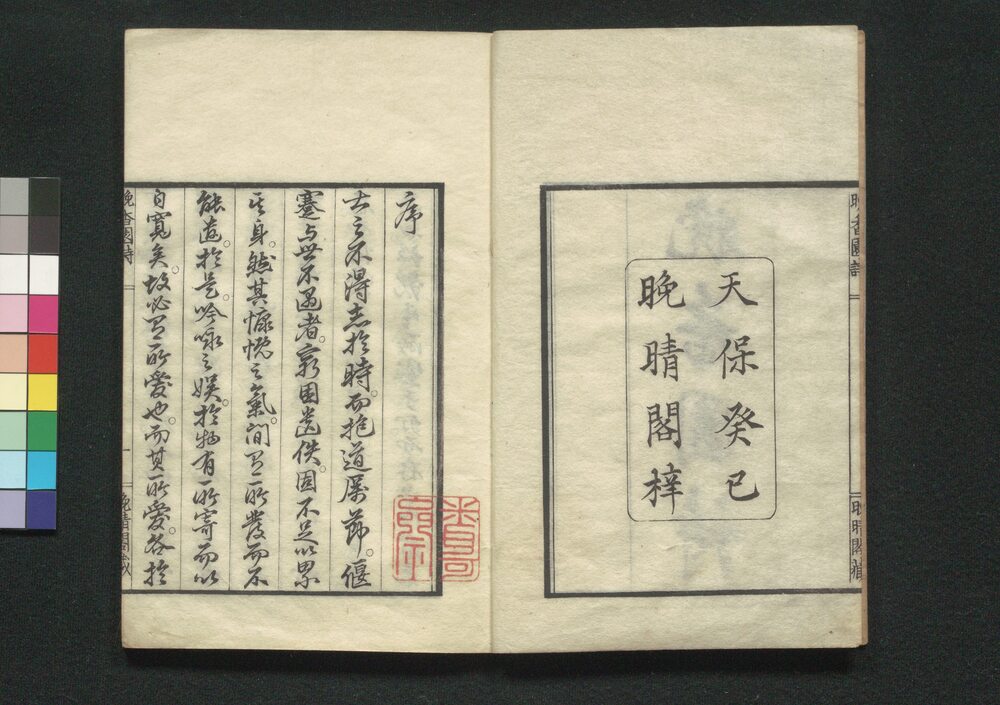 天保癸巳
晚晴閣梓
晚香園詩
晚晴閣藏
序
士之不得志於時。而抱道厲節。偃
蹇与世不遇者。窮困遺佚。固不足以累
其身。然其慷慨之氣。间有所發而不
能遣。於是吟咏之娯。於物有所寄而以
自寬矣。故必有所愛也。而其所愛。各於
晚香園詩
一
晚晴閣藏